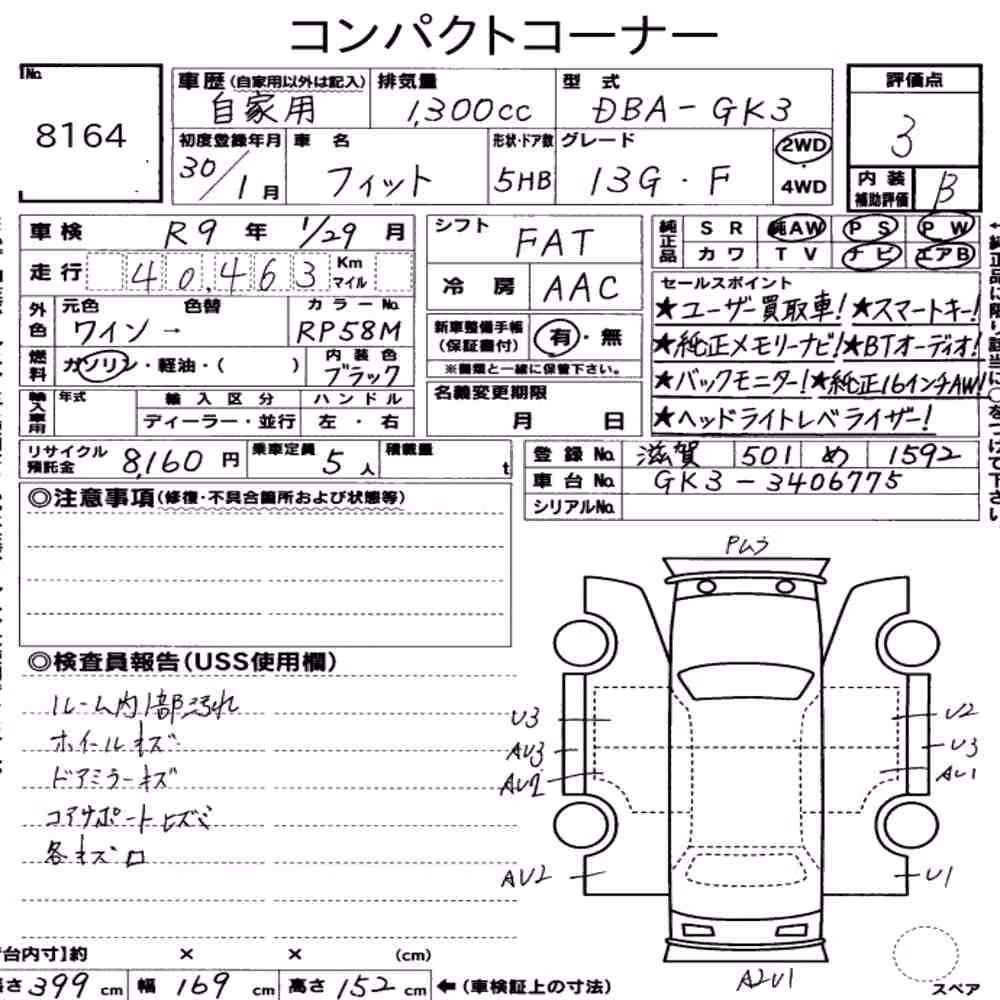 コンパクトコーナー
No.
8164
車歴(自家用以外は記入) 排気量 型式 評価点
自家用 1,300cc DBA-GK3 3
初度登録年月 車名 形状・ドア数 グレード 2WD・4WD
30/1月 フィット 5HB 13G・F
内装補助評価 B
車検 R9年 1/29月
走行 40,463 Km マイル
外色 元色 色替 カラーNo.
ワイン → RP58M
燃料 ガソリン・軽油・( ) 内装色 ブラック
輸入車用 年式 輸入区分 ハンドル
ディーラー・並行 左・右
シフト FAT
冷房 AAC
新車整備手帳(保証書付) 有・無
※書類と一緒に保管下さい。
名義変更期限
月 日
純正品 SR 純AW PS PW
カワ TV ナビ エアB
セールスポイント
★ユーザー買取車!★スマートキー!
★純正メモリーナビ!★BTオーディオ!
★バックモニター!★純正16インチAW!
★ヘッドライトレベライザー!
リサイクル預託金 8,160円 乗車定員 5人 積載量 t
登録No. 滋賀 501 め 1592
車台No. GK3-3406775
シリアルNo.
◎注意事項(修復・不具合箇所および状態等)
◎検査員報告(USS使用欄)
ルーム内1部汚れ
ホイールキズ
ドアミラーキズ
コアサポートヒズミ
各キズロ
Pムラ
U3
AU3
AU2
AU2
U2
U3
AU1
U1
A2U1
スペア
台内寸】約 × × (cm)
長さ399cm 幅169cm 高さ152cm ←(車検証上の寸法)